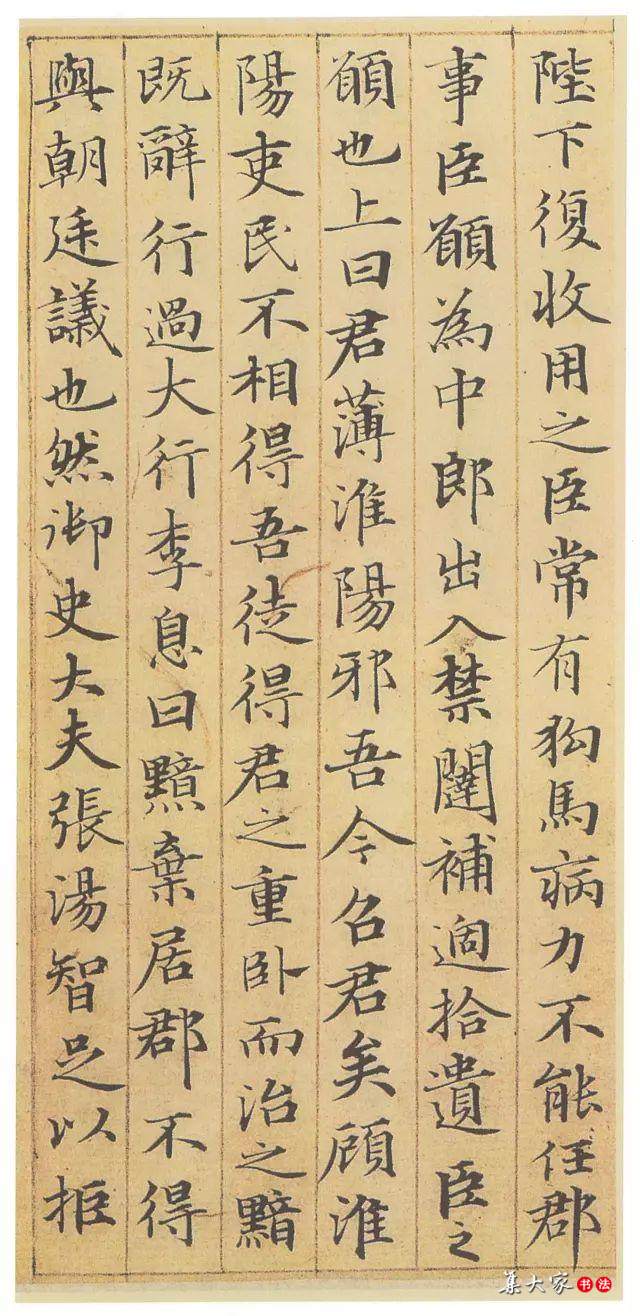 陛下復收用之臣常有狗馬病力不能任郡
事臣願為中郎出入禁闥補過拾遺臣之
願也上曰君薄淮陽邪吾今召君矣顧淮
陽吏民不相得吾徒得君之重卧而治之黯
既辭行過大行李息曰黯棄居郡不得
與朝廷議也然御史大夫張湯智足以拒
集大家书法